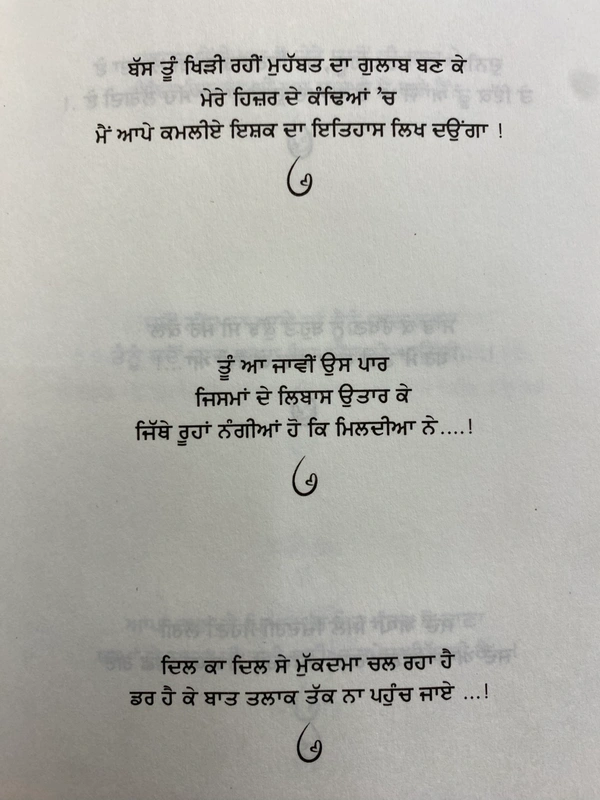 ਬੱਸ ਤੂੰ ਖਿੜੀ ਰਹੀਂ ਮੁਹੱਬਤ ਦਾ ਗੁਲਾਬ ਬਣ ਕੇ
ਮੇਰੇ ਹਿਜ਼ਰ ਦੇ ਕੰਢਿਆਂ ’ਚ
ਮੈਂ ਆਪੇ ਕਮਲੀਏ ਇਸ਼ਕ ਦਾ ਇਤਿਹਾਸ ਲਿਖ ਦਉਂਗਾ !
ਤੂੰ ਆ ਜਾਵੀਂ ਉਸ ਪਾਰ
ਜਿਸਮਾਂ ਦੇ ਲਿਬਾਸ ਉਤਾਰ ਕੇ
ਜਿੱਥੇ ਰੂਹਾਂ ਨੰਗੀਆਂ ਹੋ ਕਿ ਮਿਲਦੀਆ ਨੇ....!
ਦਿਲ ਕਾ ਦਿਲ ਸੇ ਮੁੱਕਦਮਾ ਚਲ ਰਹਾ ਹੈ
ਡਰ ਹੈ ਕੇ ਬਾਤ ਤਲਾਕ ਤੱਕ ਨਾ ਪਹੁੰਚ ਜਾਏ ...!